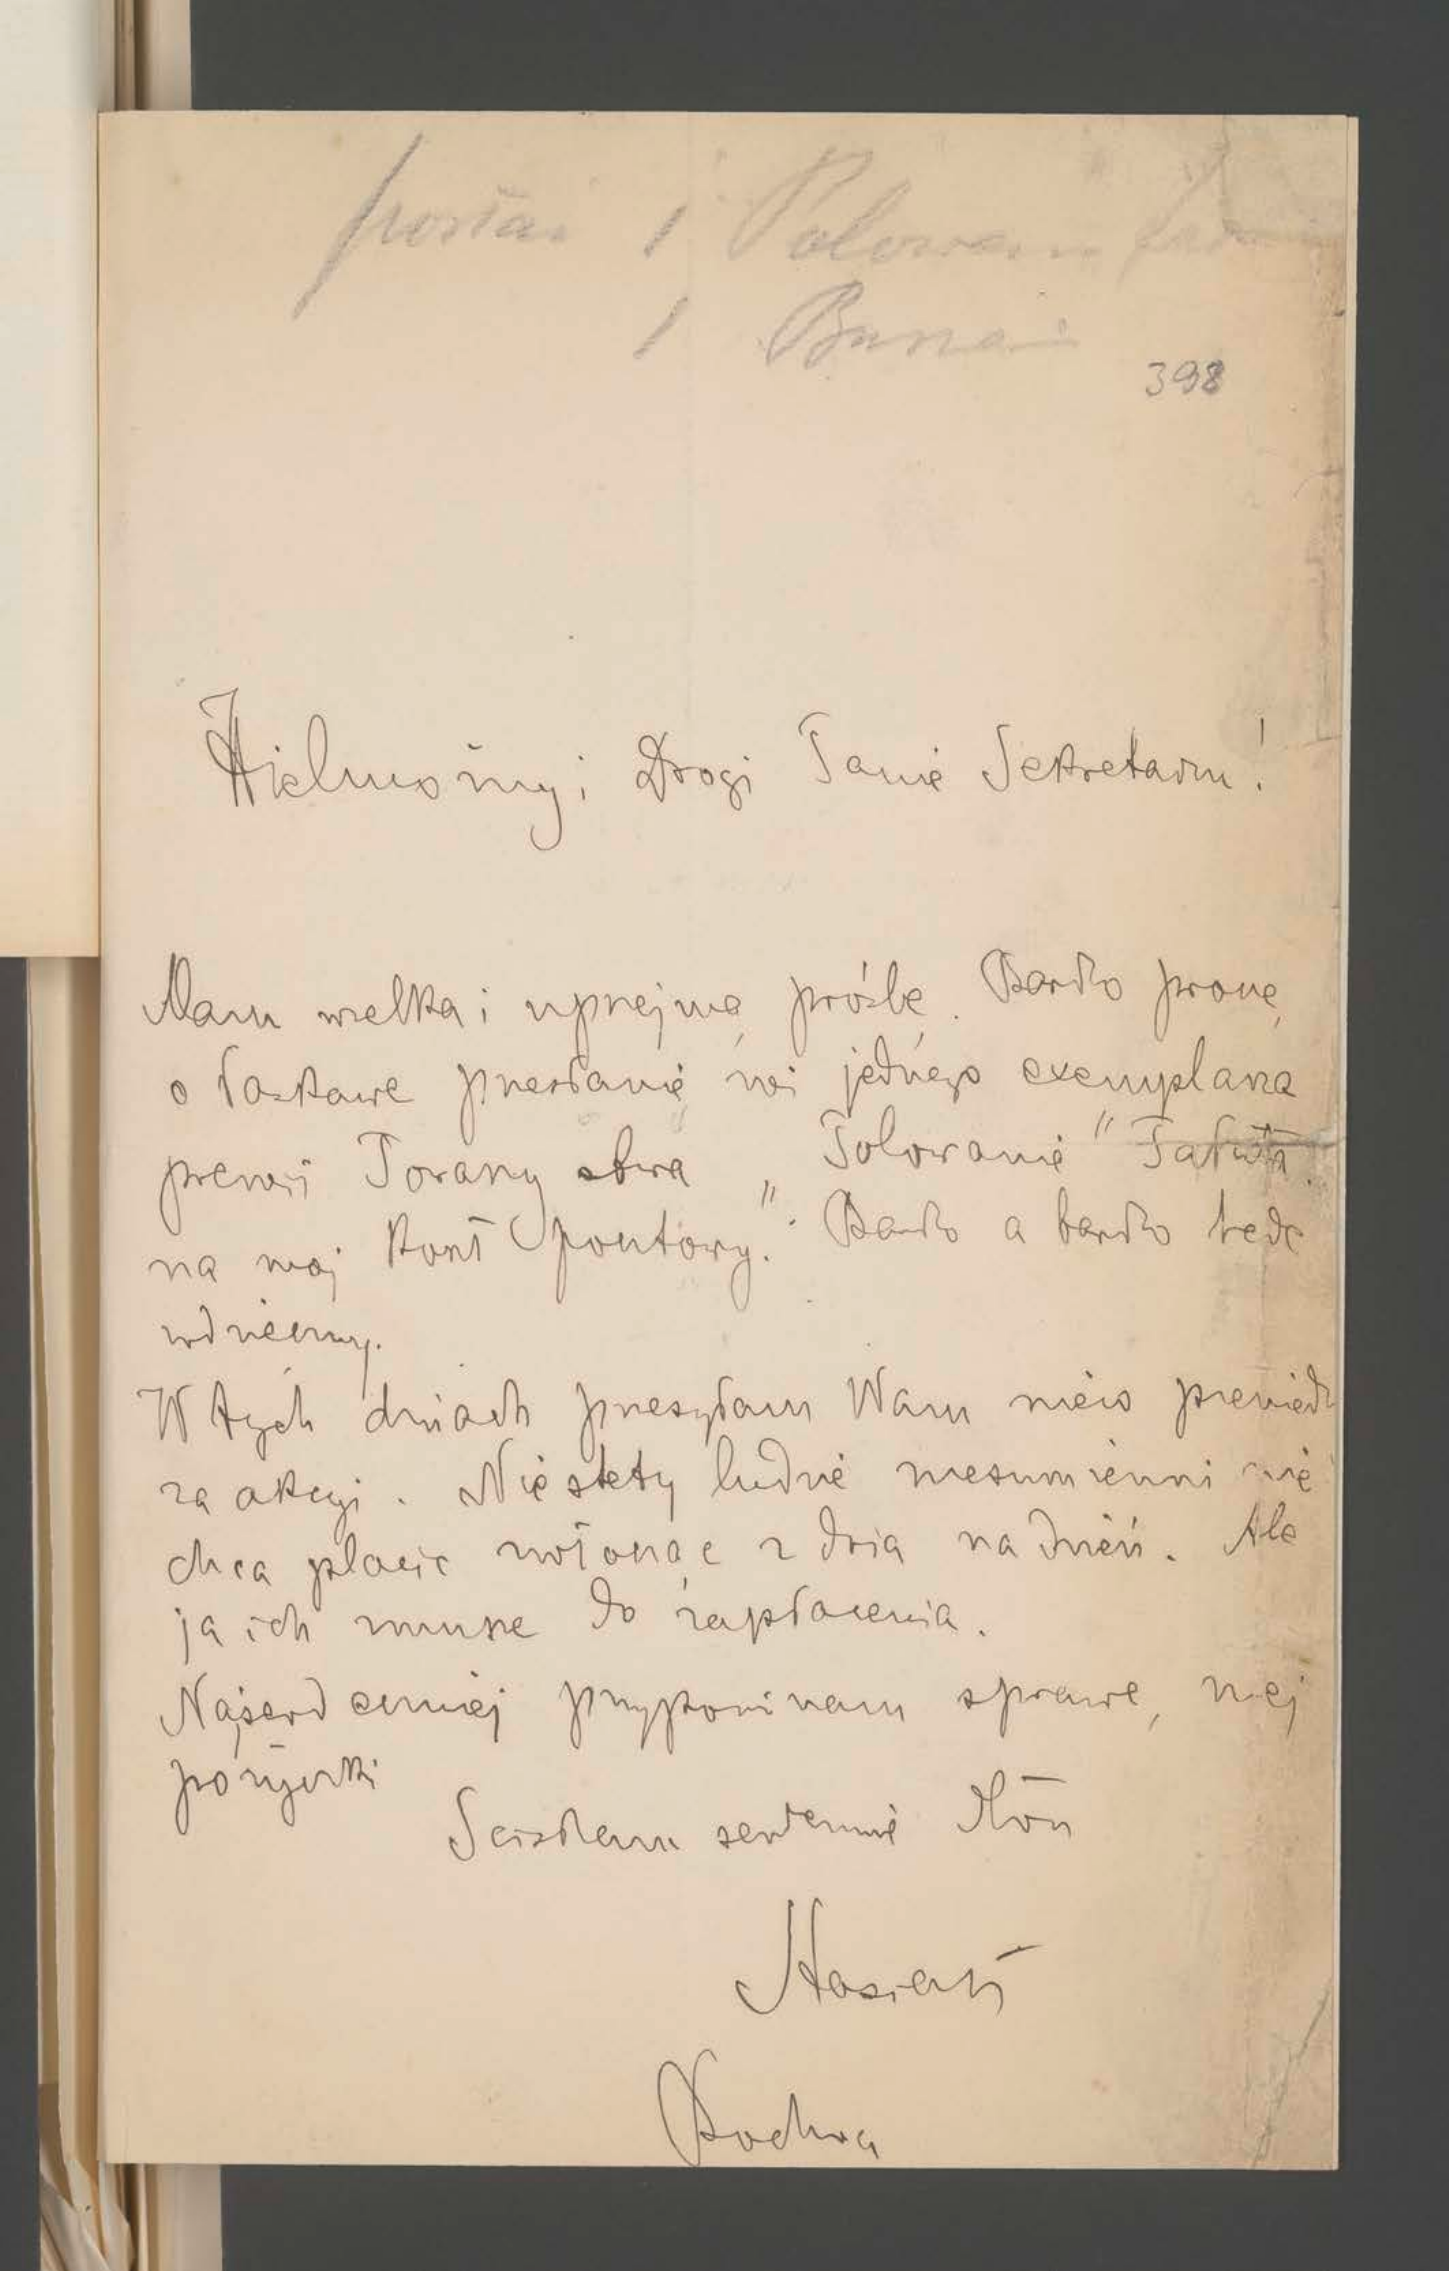 posłać 1 Polowanie
1
398
Wielmożny i Drogi Panie Sekretarzu!
Mam wielka i uprzejmą prośbę. Bardzo proszę
o łaskawe przesłanie mi jednego exemplarza
premii Polowanie" Fałata
na moj koszt Bardzo a bardzo będę
wdzięczny.
W tych dniach przesyłam Wam nieco pieniędz
za akcyi. Niestety ludzie niesumienni nie
chca płacic zwlekając z dnia na dzień. Ale
ja ich musze do zapłacenia.
Najserdeczniej przypominam sprawe, mej
pożyczki
Sciskam serdecznie dłoń